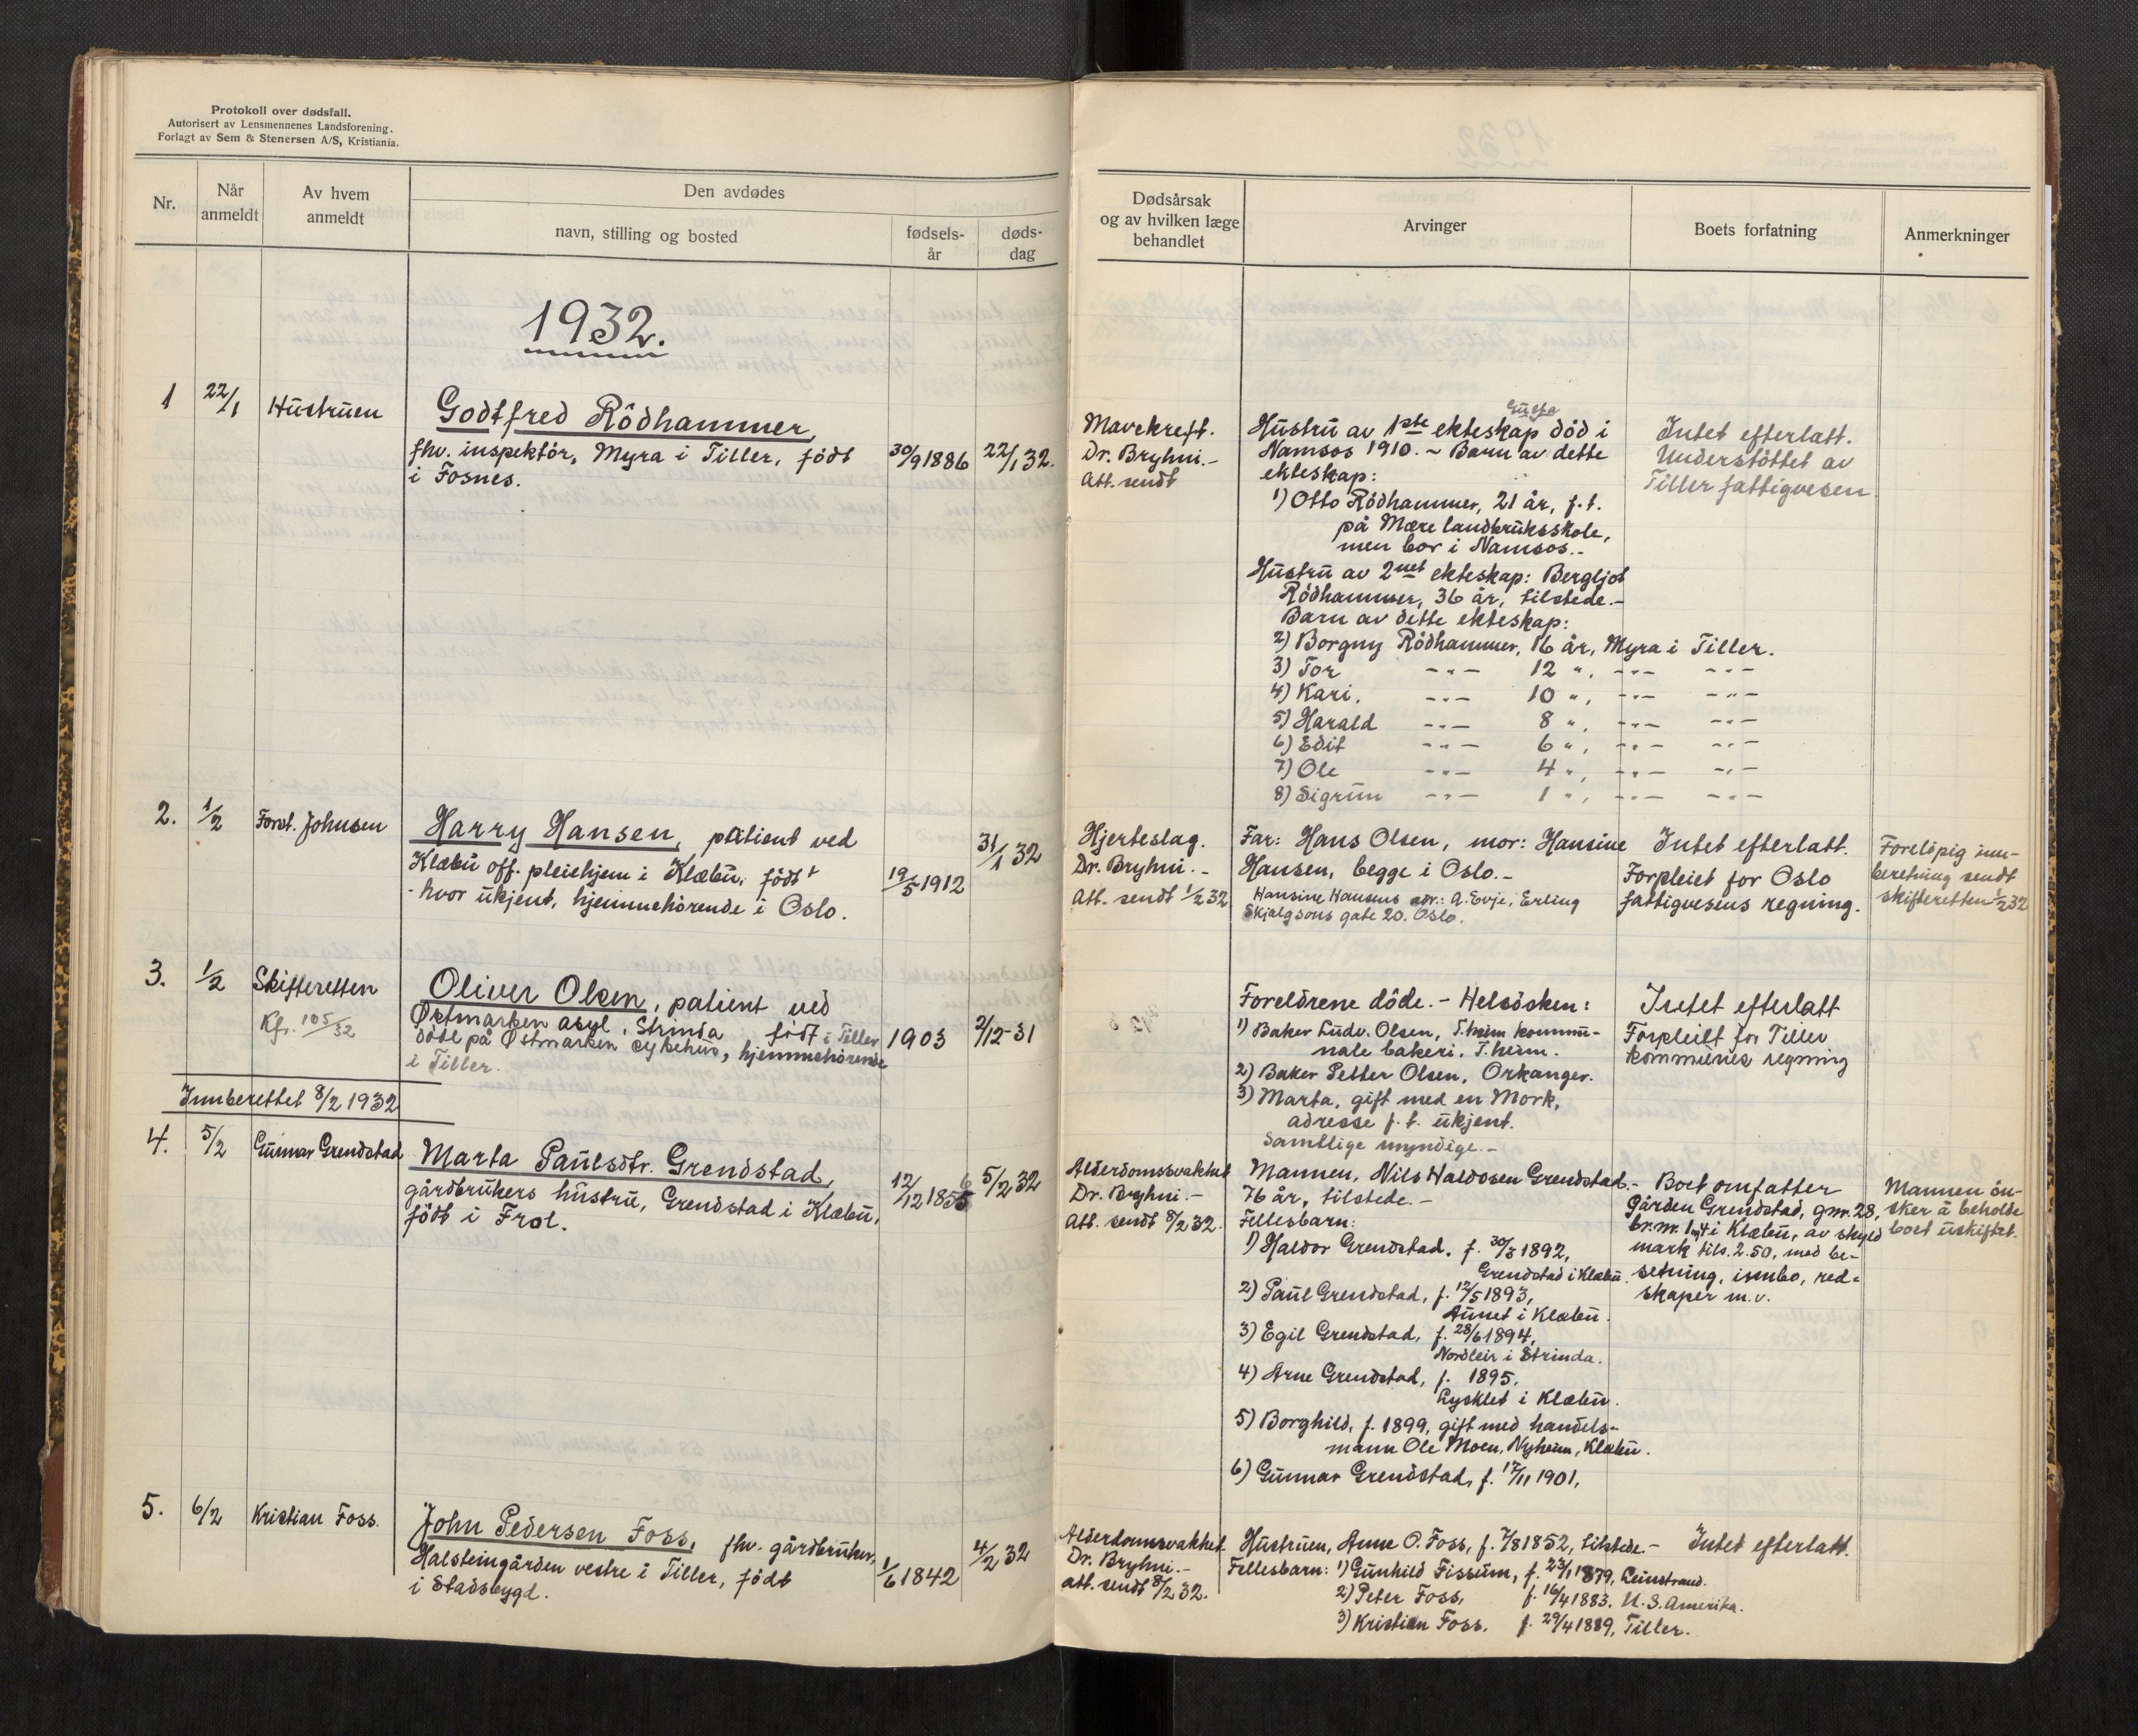 Protokoll over dødsfall.
Autorisert av Lensmennenes Landsforening.
Forlagt av Sem & Stenersen A/S, Kristiania.
Nr.
Når
anmeldt
Av hvem
anmeldt
Den avdødes
navn, stilling og bosted
fødsels-
år
døds-
dag
Dødsårsak
og av hvilken læge
behandlet
Arvinger
Boets forfatning
Anmerkninger
1932.
1
22/1
Hustruen
Godtfred Rödhammer,
fhv. inspektör, Myra i Tiller, födt
i Fosnes.
30/9 1886
22/1 32.
Mavekreft.
Dr. Bryhni.-
Att. sendt
Hustru av 1ste ekteskap död i
Namsos 1910. - Barn av dette
ekteskap:
1) Otto Rödhammer, 21 år, f.t.
på Mære landbruksskole,
men bor i Namsos.-
Hustru av 2net ekteskap: Bergljot
Rödhammer, 36 år, tilstede.-
Barn av dette ekteskap:
2) Borgny Rödhammer, 16 år, Myra i Tiller.
3) Tor -"- 12 ", -"- -"-
4) Kari, -"- 10 ", -"- -"-
5) Harald -"- 8 ", -"- -"-
6) Edit -"- 6 ", -"- -"-
7) Ole -"- 4 ", -"- -"-
8) Sigrun -"- 1 ", -"- -"-
Intet efterlatt.
Understöttet av
Tiller fattigvesen.
2.
1/2
Forst. Johnsen
Harry Hansen, patient ved
Klæbu off. pleiehjem i Klæbu, födt
- hvor ukjent, hjemmehörende i Oslo.
19/5 1912
31/1 32
Hjerteslag.
Dr. Bryhni.-
Att. sendt 1/2 32
Far: Hans Olsen, mor: Hansine
Hansen, begge i Oslo.-
Hansine Hansens adr.: A. Evje, Erling
Skjalgsons gate 20. Oslo.
Intet efterlatt.
Forpleiet for Oslo
fattigvesens regning.
Forelöpig inn-
beretning sendt
skifteretten 1/2 32
3.
1/2
Skifteretten
Kfr. 105/32
Oliver Olsen, patient ved
Østmarken asyl, Strinda födt i Tiller
död på Østmarken sykehus, hjemmehörende
i Tiller.
1903
2/12-31
Foreldrene döde. - Helsösken:
1) Baker Ludv. Olsen, T.heim kommu-
nale bakeri. T.heim.
2) Baker Petter Olsen, Orkanger.
3) Marta, gift med en Mork,
adresse f.t. ukjent.
Samtlige myndige.-
Intet efterlatt
Forpleiet for Tiller
kommunes regning
Innberettet 8/2 1932
4.
5/2
Gunnar Grendstad
Marta Paulsdtr. Grendstad,
gårdbrukers hustru, Grendstad i Klæbu,
födt i Frol.
12/12 1855
6
5/2 32
Alderdomssvakhet
Dr. Bryhni.-
Att. sendt 8/2 32.
Mannen, Nils Haldosen Grendstad.-
76 år, tilstede.-
Fellesbarn:
1) Haldor Grendstad, f. 30/3 1892,
Grendstad i Klæbu.
2) Paul Grendstad, f. 12/5 1893,
Aunet i Klæbu.
3) Egil Grendstad, f. 28/6 1894,
Nordleir i Strinda.
4) Arne Grendstad, f. 1895,
Lysklet i Klæbu.
5) Borghild, f. 1899, gift med handels-
mann Ole Moen, Nyheim, Klæbu.
6) Gunnar Grendstad, f. 17/11 1901.
Boet omfatter
gården Grendstad, gnr. 28,
br.nr. 1 og 4 i Klæbu, av skyld
mark tils. 2.50, med be-
setning, innbo, red-
skaper m.v.
Mannen ön-
sker å beholde
boet uskiftet.
5.
6/2
Kristian Foss.
John Pedersen Foss, fhv. gårdbruker,
Halsteingården vestre i Tiller, födt
i Stadsbygd.
1/6 1842
4/2 32
Alderdomsvakhet
Dr. Bryhni.-
Att. sendt 8/2 32.
Hustruen, Anne O. Foss, f. 7/8 1852, tilstede.-
Fellesbarn: 1) Gunhild Fissum, f. 23/1 1879, Leinstrand.
2) Peter Foss, f. 16/4 1883. U.S. Amerika.
3) Kristian Foss. f. 29/4 1889, Tiller.
Intet efterlatt.